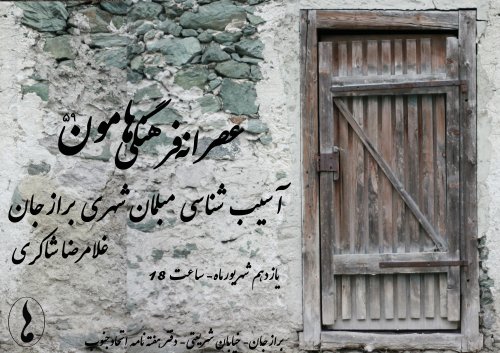 عصرانه فرهنگی هامون ۵۹
آسیب شناسی مبلمان شهری برازجان
غلامرضا شاکری
یازدهم شهریورماه - ساعت 18
برازجان - خیابان شریعتی - دفتر هفته نامه اتحاد جنوب